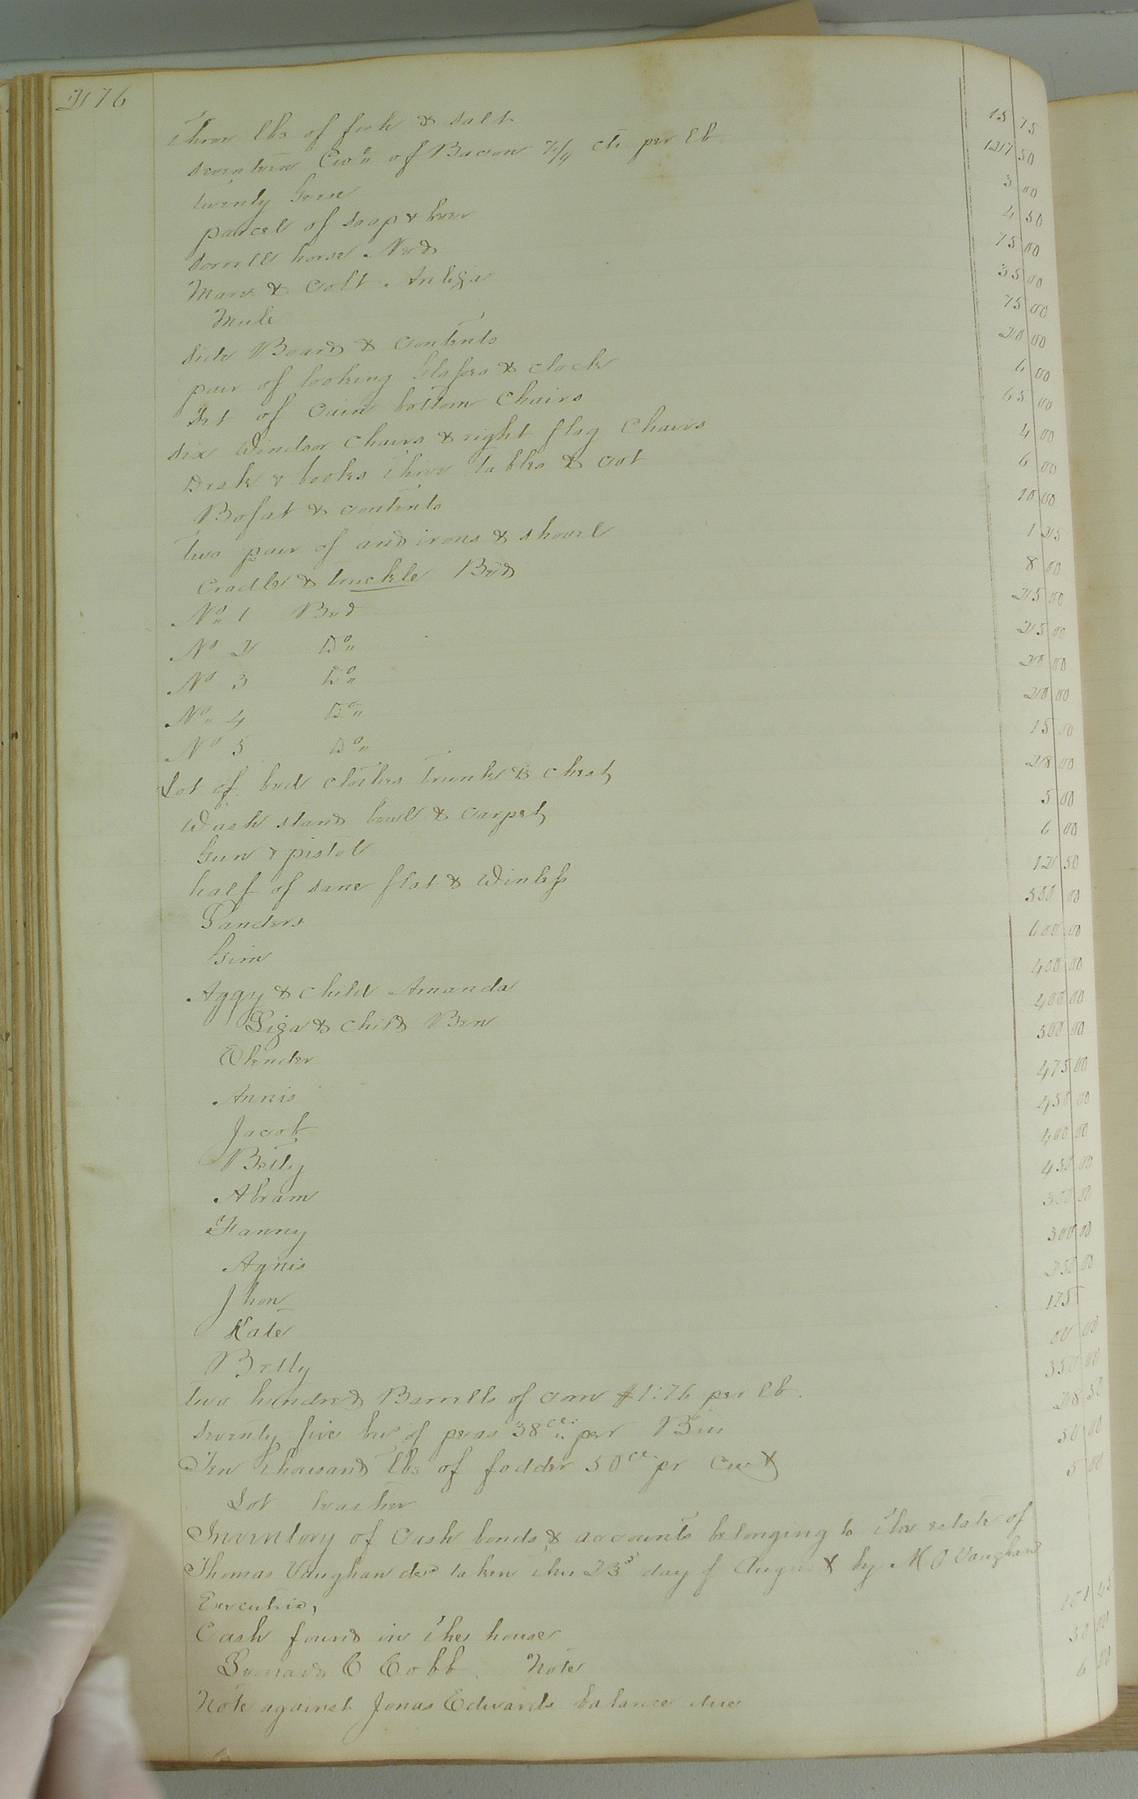 276
Three lbs of fish & salt 15 75
Seventeen Cwt of Bacon 7 1/4 cts per lb 127 50
twenty Geese 5 00
parcel of soap & 4 50
Sorrell horse Ned 75 00
Mare & Colt Antiga 35 00
Mule 75 00
Side Board & contents 20 00
pair of looking Glasses & clock 6 00
Set of Cain bottom Chairs 65 00
Six Windsor Chairs & eight flag Chairs 4 00
Desk & books three tables & cot 6 00
Bofat & contents 10 00
two pair of and irons & shovel 1 25
Cradle & truckle Bed 8 00
No 1 Bed 25 00
No 2 Do 25 00
No 3 Do 20 00
No 4 Do 20 00
No 5 Do 15 00
Lot of bed clothes trunk & chest 28 00
Wash stand bowl & carpet 5 00
Gun & pistol 6 00
half of flat & Winless 12 50
Sanders 550 00
Gim 600 00
Aggy & child Amanda 400 00
Liza & child Ben 400 00
Elender 500 00
Annis 475 00
Jacob 450 00
Betty 400 00
Abram 450 00
Fanny 350 00
Agnis 300 00
Jhon 250 00
Kate 175
Betty 00 00
two hundred Barrells of corn $1.76 per lb. 350 00
Seventy five bu of peas 38 cts per Bus 28 50
Ten thousand lbs of fodder 50 cts pr Cwt 50 00
Lot 5 00
Inventory of Cash bonds & accounts belonging to the estate of
Thomas Vaughan decd taken this 23d day of August by M J Vaughan
Executrix,
Cash found in the house 45
C Cobb Note 50 00
Note against Jonas Edwards balance due 6 50